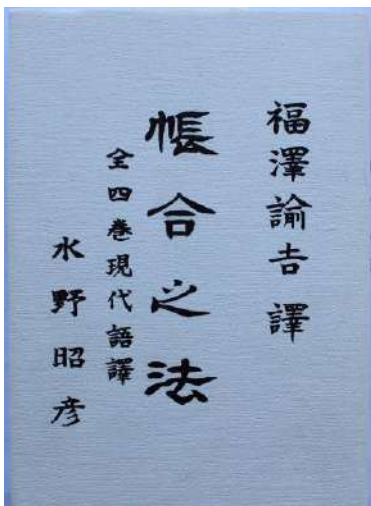 福澤諭吉 譯
帳合之法
全四巻現代語譯
水野昭彦